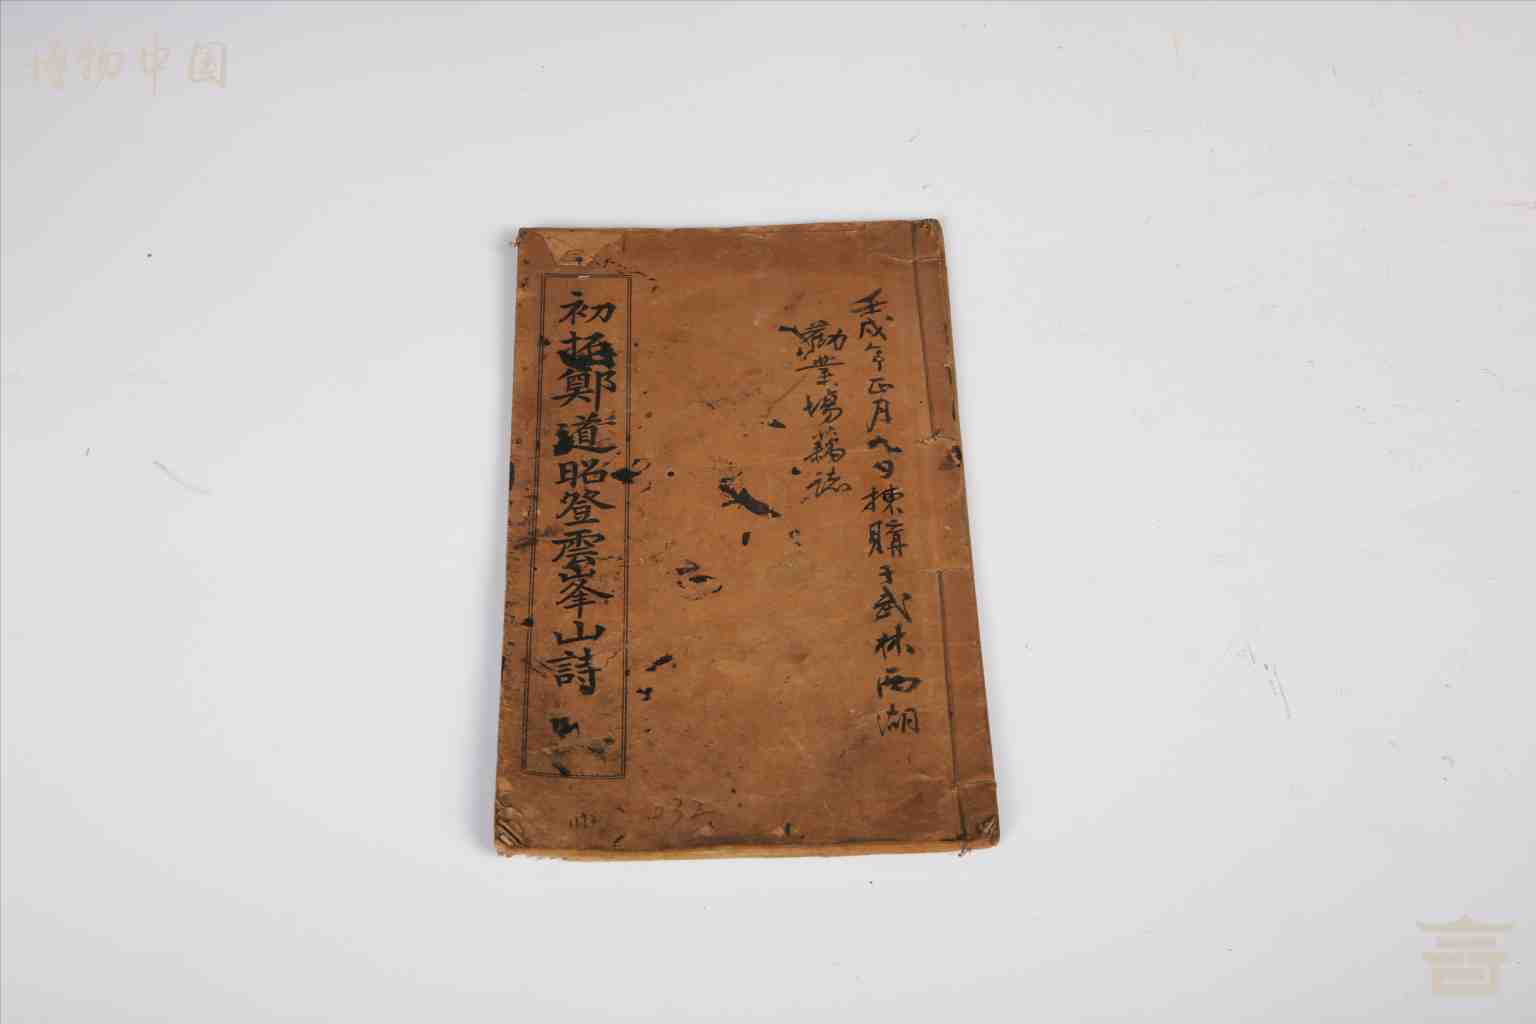 博物中国
壬戌年正月九日揀購于武林西湖
勸業場藕誌
初拓鄭道昭登雲峯山詩
032